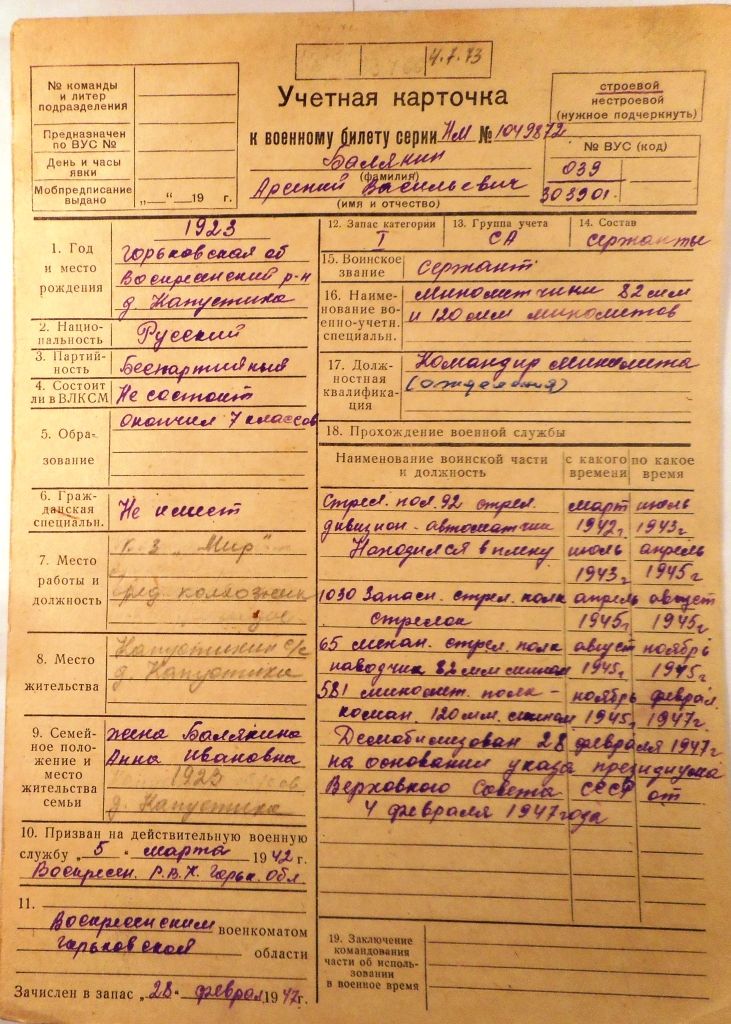 4.7.73
Учетная карточка
к военному билету серии НМ № 1049872
Балякин
(фамилия)
Арсений Васильевич
(имя и отчество)
№ команды
и литер
подразделения
Предназначен
по ВУС №
День и часы
явки
Мобпредписание
выдано
„—“ 19 г.
строевой
нестроевой
(нужное подчеркнуть)
№ ВУС (код)
039
303901.
1. Год
и место
рождения
1923
Горьковская об
Воскресенский р-н
д. Капустиха
2. Нацио-
нальность
Русский
3. Партий-
ность
Беспартийный
4. Состоит
ли в ВЛКСМ
Не состоит
5. Обра-
зование
окончил 7 классов
6. Граж-
данская
специальн.
Не имеет
7. Место
работы и
должность
к-з „Мир"
колхозник
8. Место
жительства
Капустихин с/с
д. Капустиха
9. Семей-
ное поло-
жение и
место
жительства
семьи
жена Балякина
Анна Ивановна
1923
д. Капустиха
10. Призван на действительную военную
службу „5“ марта 1942 г.
Воскресен. Р.В.К. Горьк. обл.
11.
Воскресенским военкоматом
Горьковской области
Зачислен в запас „28“ феврал 1947 г.
12. Запас категории
I
13. Группа учета
СА
14. Состав
сержанты
15. Воинское
звание
Сержант
16. Наиме-
нование во-
енно-учетн.
специальн.
Минометчики 82 мм
и 120 мм минометов
17. Долж-
ностная
квалифика-
ция
Командир миномета
(отделения)
18. Прохождение военной службы
Наименование воинской части
и должность
с какого
времени
по какое
время
Стрел. пол. 92 стрел. март июль
дивизион - автоматчик 1942г. 1943г.
Находился в плену июль апрель
1943г 1945г
1030 Запасн. стрел. полк апрель август
стрелок 1945г. 1945г.
65 механ. стрел. полк август ноябрь
наводчик 82 мм мином 1945г. 1945г.
581 миномет. полк - ноябрь феврал.
коман. 120 мм. мином 1945г. 1947г.
Демобилизован 28 февраля 1947г
на основании указа президиума
Верховного Совета СССР от
4 февраля 1947 года
19. Заключение
командования
части об исполь-
зовании
в военное время